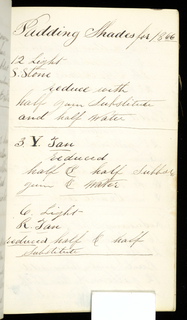 Padding Shades for 1866
12 Light
S. Stone
reduce with
half gum Substitute
and half water
3. Y. Tan
reduced
half & half Subber
gum & water
6 Light
R. Tan
reduced half & half
Substitute